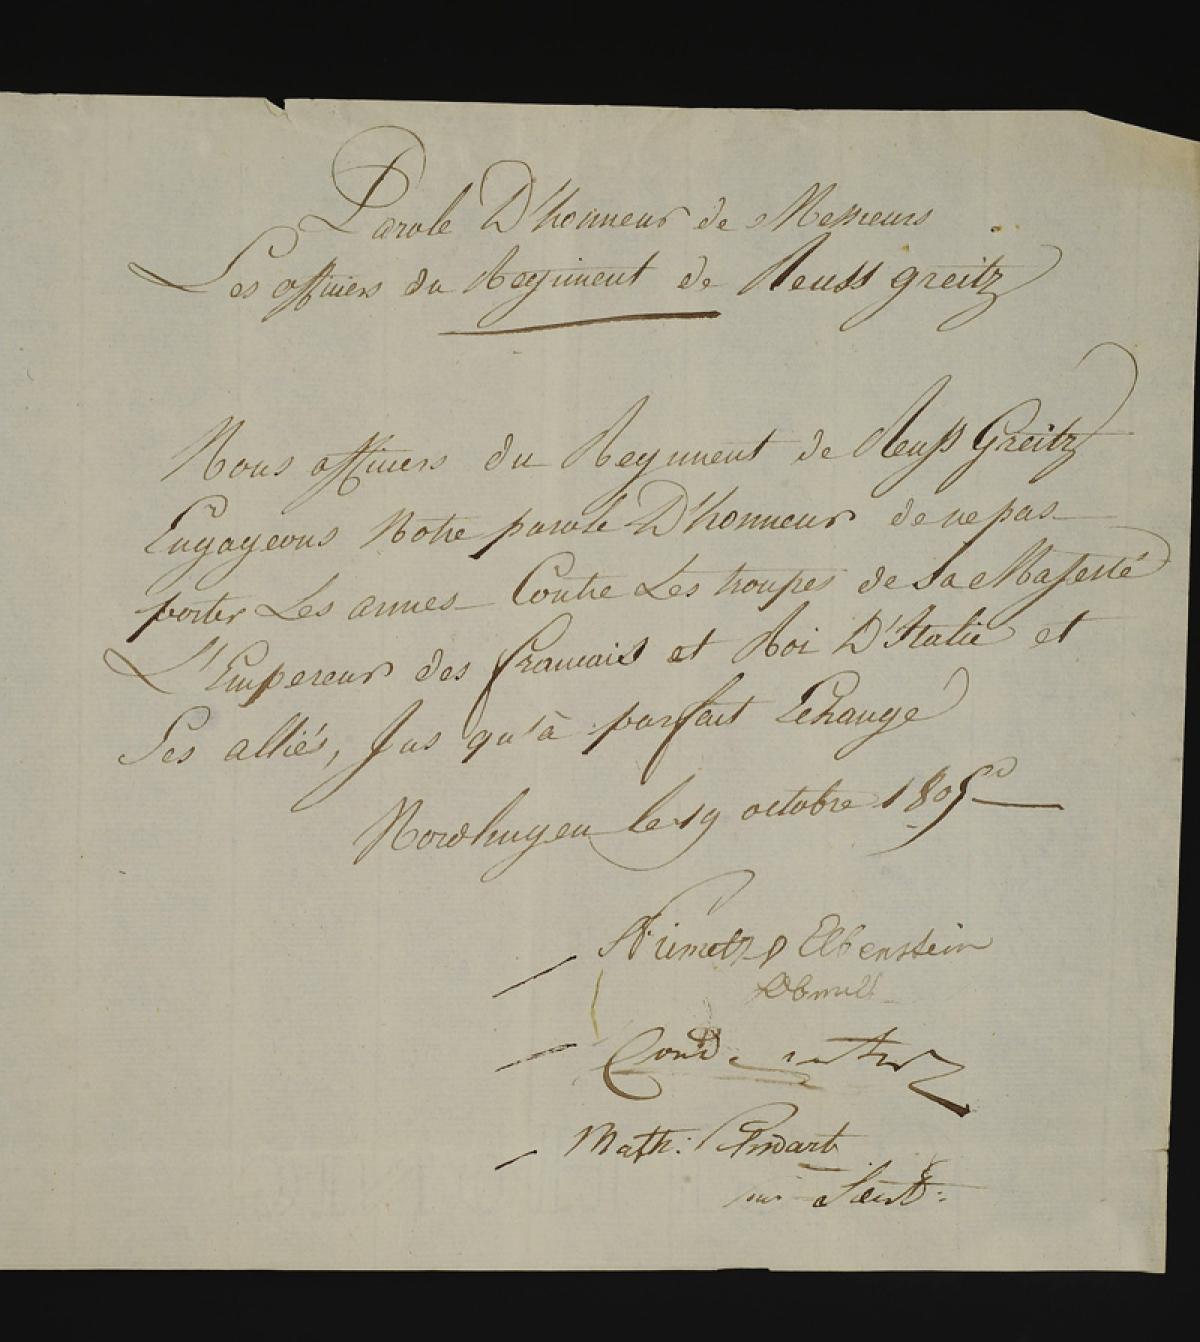 Parole D'honneur de Messieurs
Les officiers du Regiment de Reuss greitz
Nous officiers du Regiment de Reuss Greitz
Engageons Notre parole D'honneur de ne pas
porter Les armes Contre Les troupes de Sa Majesté
L'Empereur des francais et Roi D'Italie et
Ses alliés, Jus qu'à parfait Echange
Nordlingen le 19 octobre 1805
Elbenstein
Math: